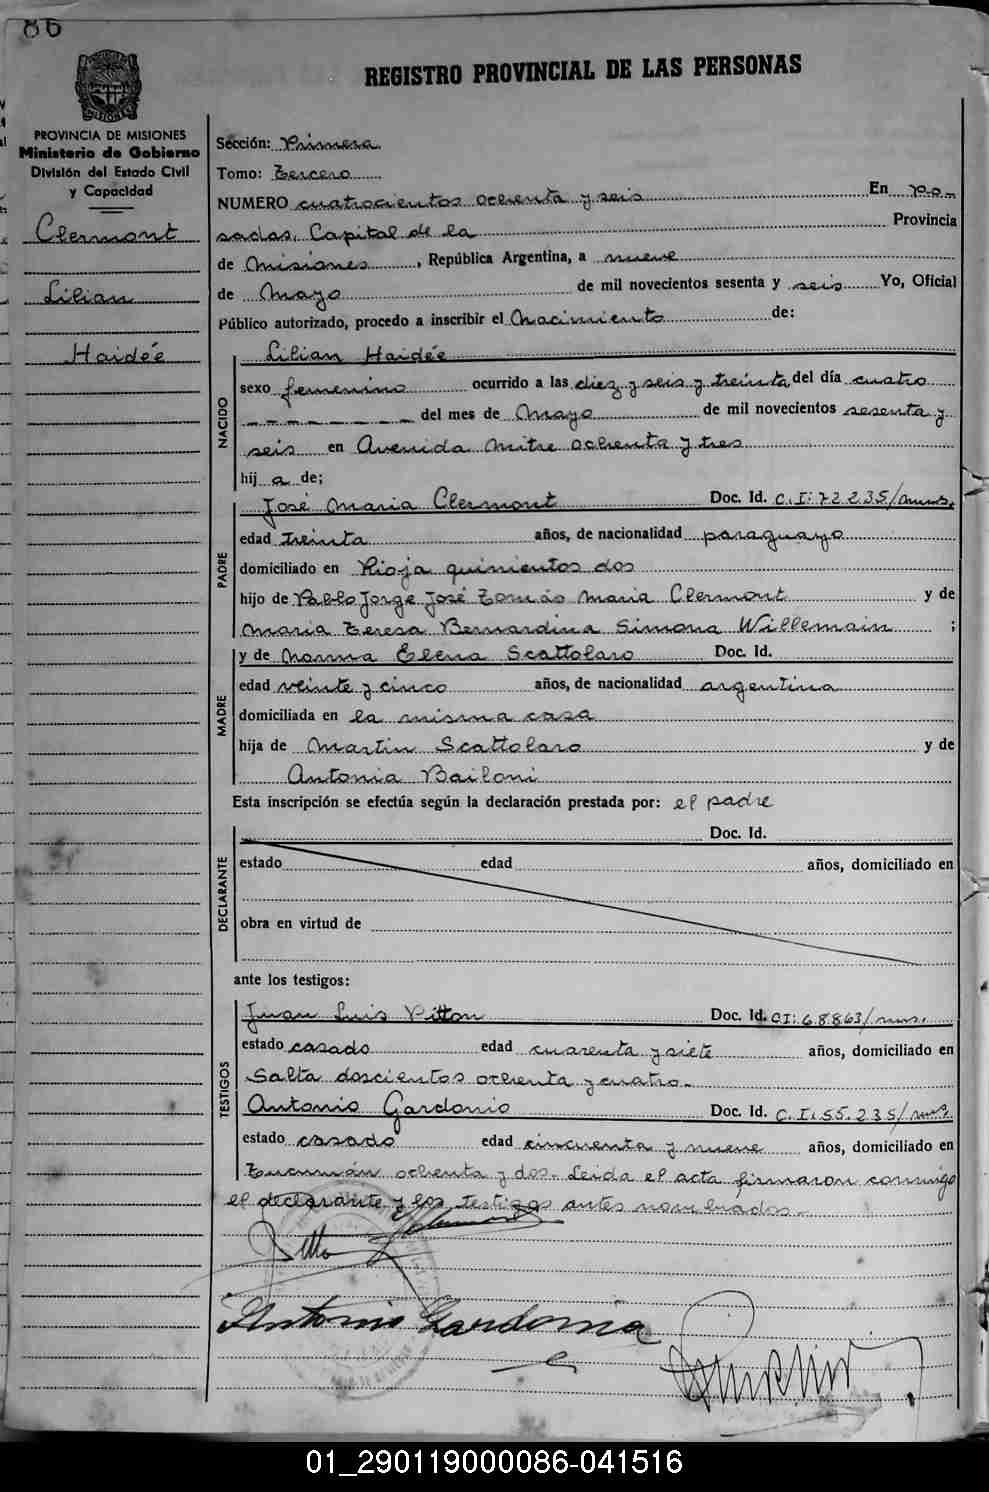 86
REGISTRO PROVINCIAL DE LAS PERSONAS
PROVINCIA DE MISIONES
Ministerio de Gobierno
División del Estado Civil
y Capacidad
Clermont
Lilian
Haidée
Sección: Primera
Tomo: Tercero
NUMERO cuatrocientos ochenta y seis En Po-
sadas, Capital de la Provincia
de Misiones, República Argentina, a nueve
de Mayo de mil novecientos sesenta y seis Yo, Oficial
Público autorizado, procedo a inscribir el Nacimiento de:
NACIDO
Lilian Haidée
sexo femenino ocurrido a las diez y seis y treinta del día cuatro
del mes de Mayo de mil novecientos sesenta y
seis en Avenida Mitre ochenta y tres
hij a de;
PADRE
José Maria Clermont Doc. Id. C.I: 72.235/mnes.
edad treinta años, de nacionalidad paraguayo
domiciliado en Rioja quinientos dos
hijo de Pablo Jorge José Tomás Maria Clermont y de
Maria Teresa Bernardina Simona Willemain ;
MADRE
y de Norma Elena Scattolaro Doc. Id.
edad veinte y cinco años, de nacionalidad argentina
domiciliada en la misma casa
hija de Martin Scattolaro y de
Antonia Bailoni
Esta inscripción se efectúa según la declaración prestada por: el padre
DECLARANTE
Doc. Id.
estado edad años, domiciliado en
obra en virtud de
ante los testigos:
TESTIGOS
Juan Luis Pitton Doc. Id. CI: 68863/mns.
estado casado edad cuarenta y siete años, domiciliado en
Salta doscientos ochenta y cuatro.
Antonio Gardonio Doc. Id. C.I. 55.235/mns.
estado casado edad cincuenta y nueve años, domiciliado en
Tucumán ochenta y dos.- Leida el acta firmaron conmigo
el declarante y los testigos antes nombrados.-
Antonio Gardonio
01_290119000086-041516